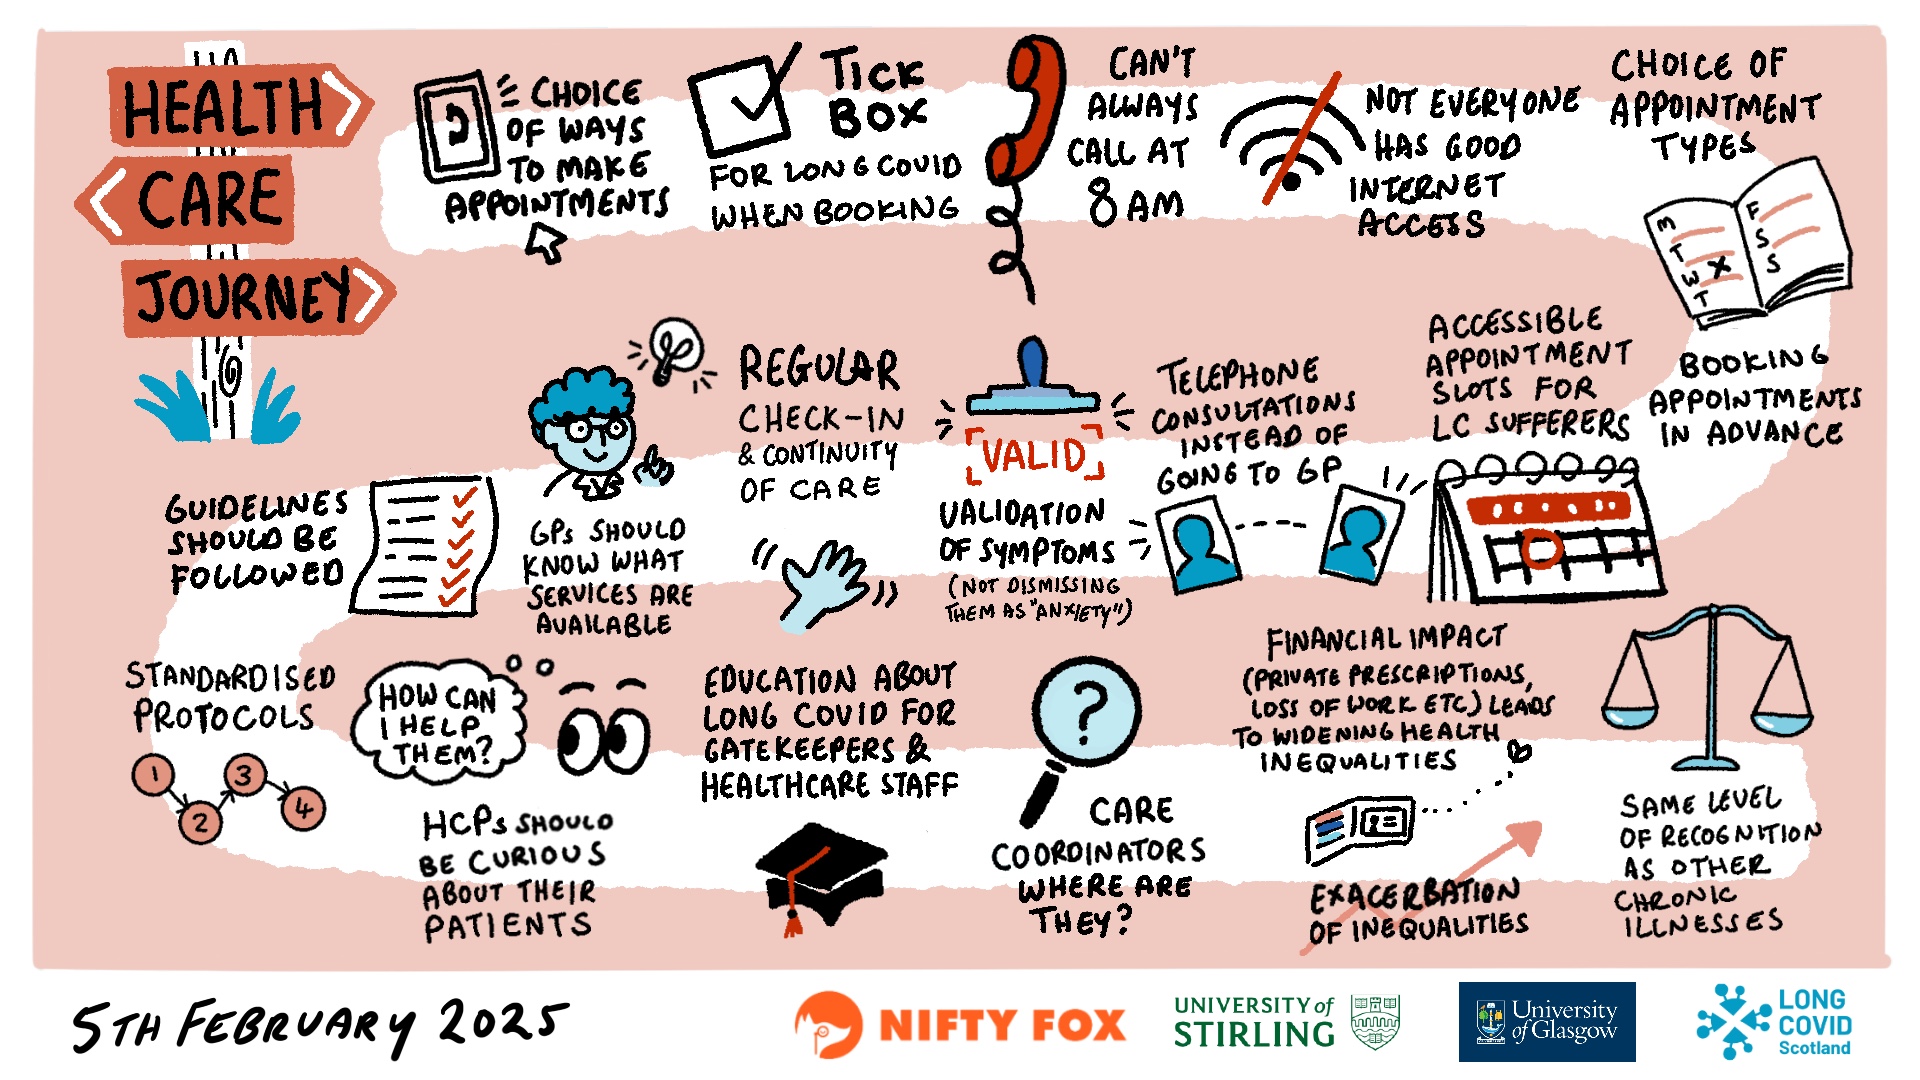 HEALTH
CARE
JOURNEY
CHOICE
OF WAYS
TO MAKE
APPOINTMENTS
TICK
BOX
FOR LONG COVID
WHEN BOOKING
CAN'T
ALWAYS
CALL AT
8 AM
NOT EVERYONE
HAS GOOD
INTERNET
ACCESS
CHOICE OF
APPOINTMENT
TYPES
M
T
W
T
X
F
S
S
BOOKING
APPOINTMENTS
IN ADVANCE
ACCESSIBLE
APPOINTMENT
SLOTS FOR
LC SUFFERERS
TELEPHONE
CONSULTATIONS
INSTEAD OF
GOING TO GP
VALID
VALIDATION
OF SYMPTOMS
(NOT DISMISSING
THEM AS "ANXIETY")
REGULAR
CHECK-IN
& CONTINUITY
OF CARE
GPs SHOULD
KNOW WHAT
SERVICES ARE
AVAILABLE
GUIDELINES
SHOULD BE
FOLLOWED
STANDARDISED
PROTOCOLS
1
2
3
4
HOW CAN
I HELP
THEM?
HCPs SHOULD
BE CURIOUS
ABOUT THEIR
PATIENTS
EDUCATION ABOUT
LONG COVID FOR
GATEKEEPERS &
HEALTHCARE STAFF
?
CARE
COORDINATORS
WHERE ARE
THEY?
FINANCIAL IMPACT
(PRIVATE PRESCRIPTIONS,
LOSS OF WORK ETC) LEADS
TO WIDENING HEALTH
INEQUALITIES
EXACERBATION
OF INEQUALITIES
SAME LEVEL
OF RECOGNITION
AS OTHER
CHRONIC
ILLNESSES
5TH FEBRUARY 2025
NIFTY FOX
UNIVERSITY of
STIRLING
University
of Glasgow
LONG
COVID
Scotland